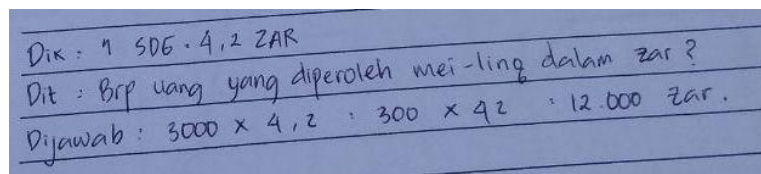 Dik : 1 SDG . 4,2 ZAR
Dit : Brp uang yang diperoleh mei-ling dalam zar ?
Dijawab : 3000 x 4,2 : 300 x 42 : 12.000 zar.